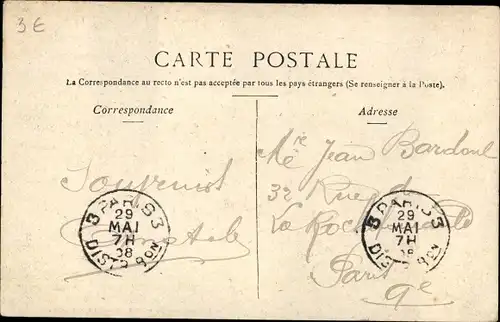 3 E
CARTE POSTALE
La Correspondance au recto n'est pas acceptée par tous les pays étrangers (Se renseigner à la Poste).
Correspondance
Adresse
Souvenirs
PARIS 3
29
MAI
7H
08
DISTRIBON
Jean
32 Rue de
La
Paris
9e
PARIS 3
29
MAI
7H
08
DISTRIBON